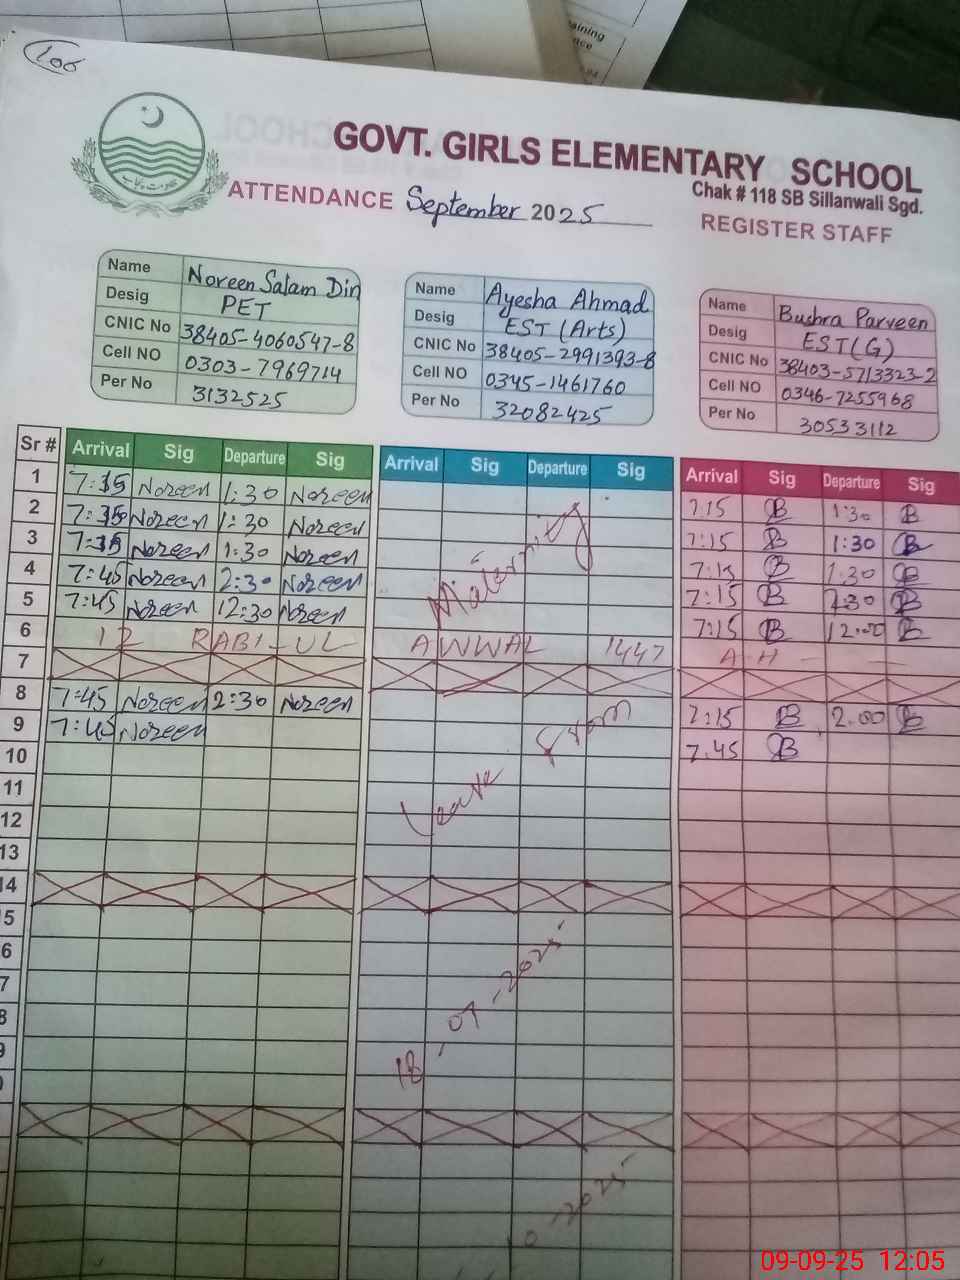 100
GOVT. GIRLS ELEMENTARY SCHOOL
Chak # 118 SB Sillanwali Sgd.
ATTENDANCE September 2025 REGISTER STAFF
Name Noreen Salam Din
Desig PET
CNIC No 38405-4060547-8
Cell NO 0303-7969714
Per No 3132525
Name Ayesha Ahmad
Desig EST (Arts)
CNIC No 38405-2991393-8
Cell NO 0345-1461760
Per No 32082425
Name Bushra Parveen
Desig EST(G)
CNIC No 38403-5713323-2
Cell NO 0346-7255968
Per No 30533112
Sr # Arrival Sig Departure Sig Arrival Sig Departure Sig Arrival Sig Departure Sig
1 7:35 Noreen 1:30 Noreen 7:15 B 1:30 B
2 7:35 Noreen 1:30 Noreen 7:15 B 1:30 B
3 7:35 Noreen 1:30 Noreen 7:15 B 1:30 B
4 7:45 Noreen 2:30 Noreen 7:15 B B
5 7:45 Noreen 12:30 Noreen 7:15 B 12:00 B
6 12 RABI-UL AWWAL 1447 A-H
7
8 7:45 Noreen 2:30 Noreen 7:15 B 2:00 B
9 7:45 Noreen 7.45 B
10
11
12
13
14
5
6
7
8
9
Maternity
Leave From
18-07-2025
10-2025
09-09-25 12:05